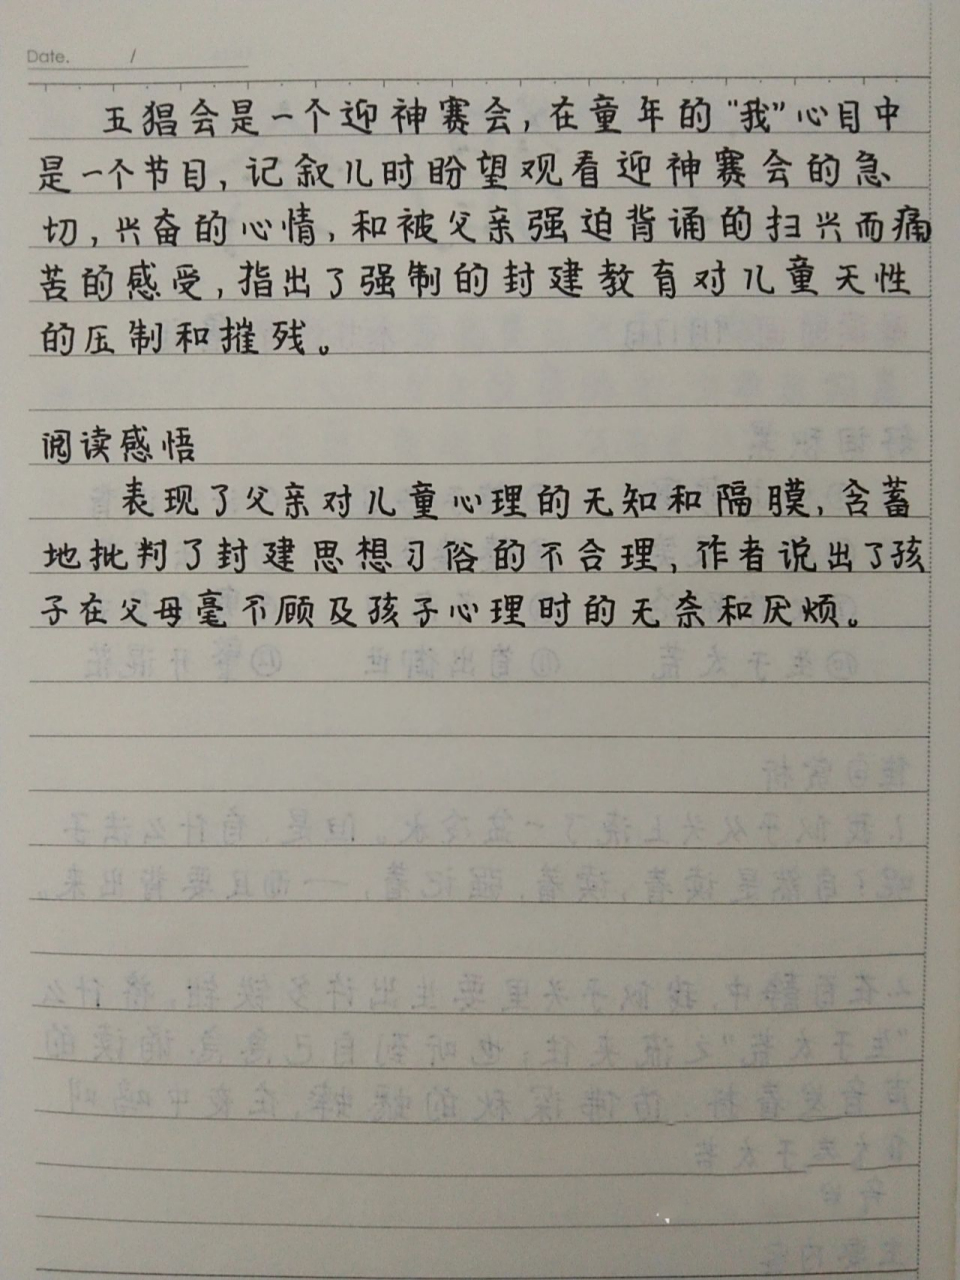 Date. /
五猖会是一个迎神赛会,在童年的"我"心目中
是一个节目,记叙儿时盼望观看迎神赛会的急
切,兴奋的心情,和被父亲强迫背诵的扫兴而痛
苦的感受,指出了强制的封建教育对儿童天性
的压制和摧残。
阅读感悟
表现了父亲对儿童心理的无知和隔膜,含蓄
地批判了封建思想习俗的不合理,作者说出了孩
子在父母毫不顾及孩子心理时的无奈和厌烦。